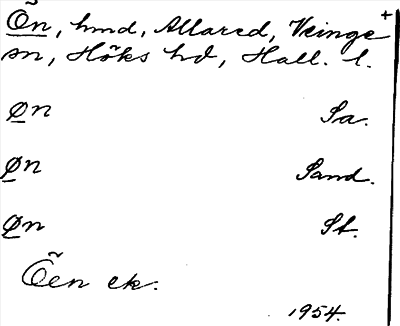 Õn, hmd, Allared, Veinge +
sn, Höks hd, Hall. l.
Øn Sa.
Øn Sand.
Øn St.
Õen ek.
1954.